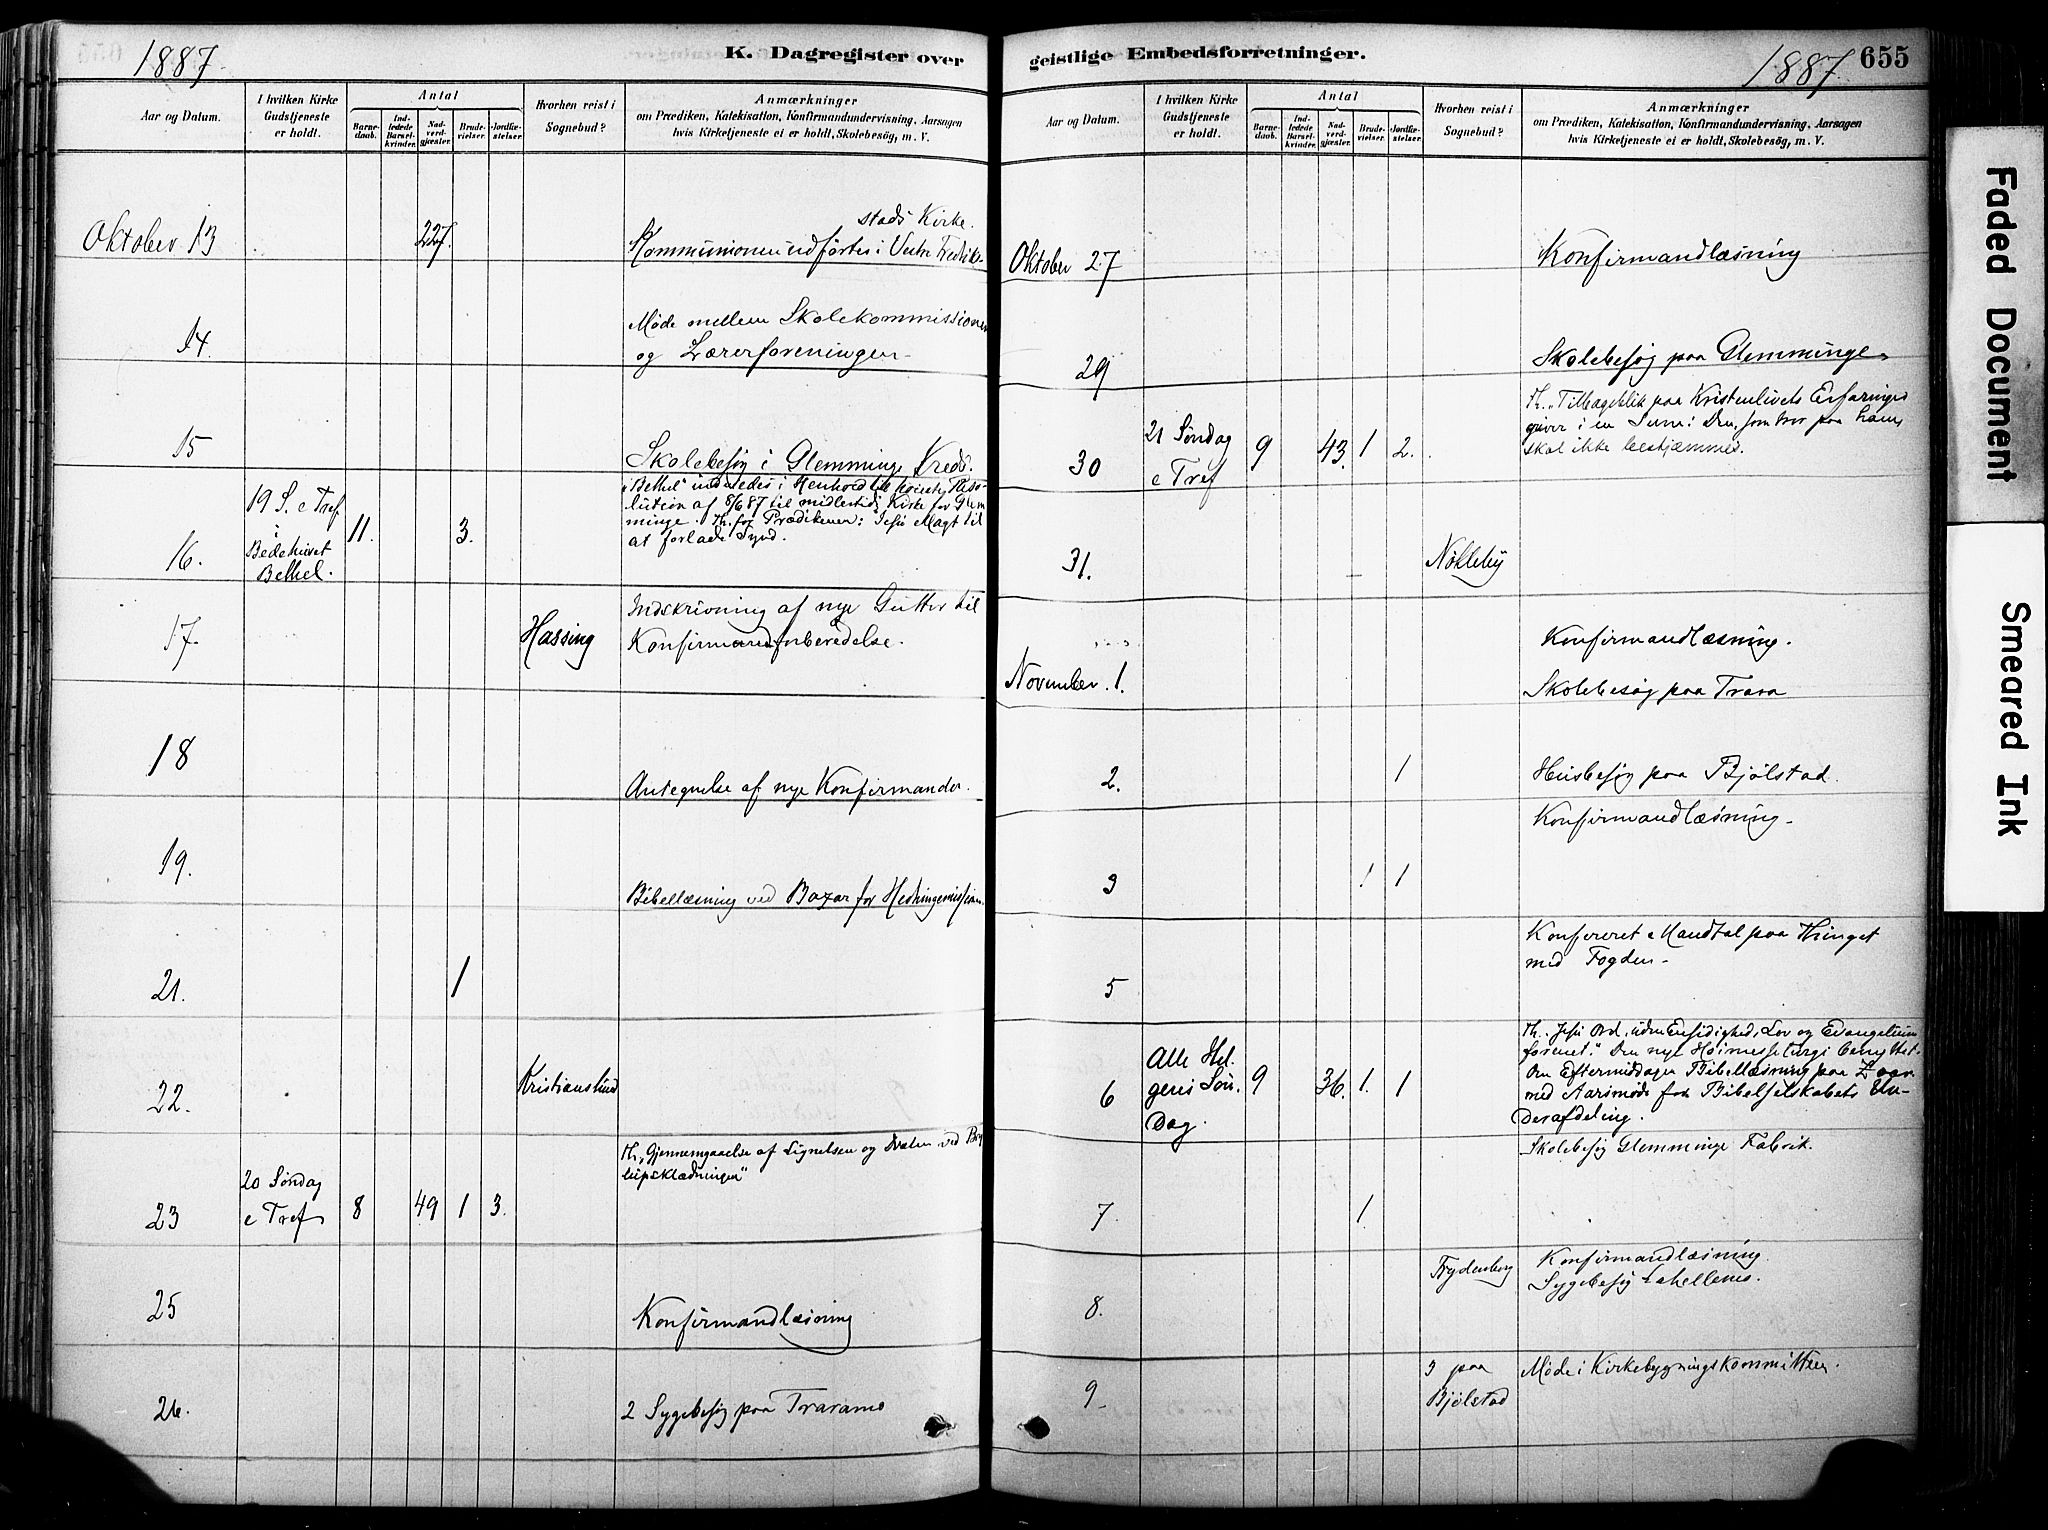 1887
K. Dagregister over
Aar og Datum.
I hvilken Kirke
Gudstjeneste
er holdt.
Antal
Barne-
daab.
Ind-
ledede
Barsel-
kvinder.
Nad-
verd-
gjæster.
Brude-
vielser.
Jordfæ-
stelser.
Hvorhen reist i
Sognebud?
Anmærkninger
om Prædiken, Katekisation, Konfirmandundervisning, Aarsagen
hvis Kirketjeneste ei er holdt, Skolebesög, m. V.
stads Kirke.
Oktober 13 227. Kommunionen udførtes i Vestre Fredrik-
14. Møde mellem Skolekommissionen
og Lærerforeningen
15 Skolebesøg i Glemminge Kreds.
16. 19 S. e Tref.
i
Bedehuset
Bethel.
11. 3.
"Bethel" indviedes i Henhold til Reso-
lution af 8/6 87 til midlertidig Kirke for Glem
minge. Th. for Prædikenen: Jesu Magt til
at forlade Synd.
17. Hassing Indskrivning af nye Gutter til
Konfirmandforberedelse.
18 Antegnelse af nye Konfirmander.
19. Bibellæsning ved Bazar for Hedningemission.
21. 1
22. Kristianslund
23 20 Søndag
e Tref
8 49 1 3.
Th. "Gjennemgaaelse af Lignelsen og ved Bry
lupsklædningen"
25 Konfirmandlæsning
26. 2 Sygebesøg paa Traramo
geistlige Embedsforretninger.
1887.
655
Aar og Datum.
I hvilken Kirke
Gudstjeneste
er holdt.
Antal
Barne-
daab.
Ind-
ledede
Barsel-
kvinder.
Nad-
verd-
gjæster.
Brude-
vielser.
Jordfæ-
stelser.
Hvorhen reist i
Sognebud?
Anmærkninger
om Prædiken, Katekisation, Konfirmandundervisning, Aarsagen
hvis Kirketjeneste ei er holdt, Skolebesög, m. V.
Oktober 27 Konfirmandlæsning
29 Skolebesøg paa Glemminge
30 21 Søndag
e Tref
9 43. 1 2.
Th. "Tilbageblik paa Kristenlivets Erfaringer
giver i en Sum: Den, som tror paa ham,
skal ikke beskjæmmes.
31. Nøkleby
Konfirmandlæsning.
November 1. Skolebesøg paa Trara
2. 1 Husbesøg paa Bjølstad.
Konfirmandlæsning.
3 1 1
5 Konfereret Mandtal paa Thinget
med Fogden
6 Alle Hel
gens Søn
dag.
9 36. 1. 1
Th. Jesu Ord, uden Ensidighed, Lov og Evangelium
forenet." Den nye Høimesseliturgi benyttet.
Om Eftermiddagen Bibellæsning paa
med Aarsmøde for Bibelselskabets Un-
derafdeling.
Skolebesøg Glemminge Fabrik.
7. 1.
8. Frydenberg Konfirmandlæsning
Sygebesøg
9 3 paa
Bjølstad
Møde i Kirkebygningskommitteen.
Faded Document
Smeared Ink